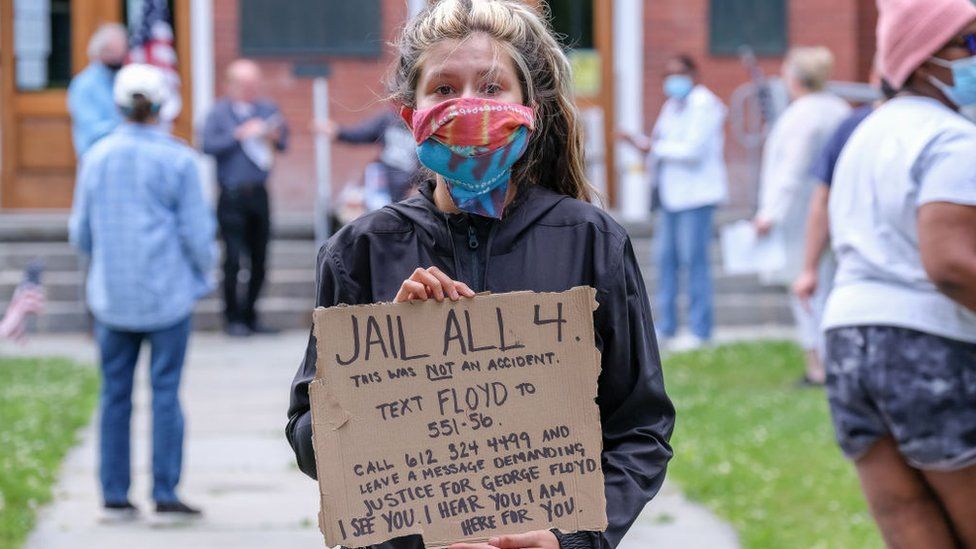 JAIL ALL 4.
THIS WAS NOT AN ACCIDENT.
TEXT FLOYD TO
551-56.
CALL 612 324 4499 AND
LEAVE A MESSAGE DEMANDING
JUSTICE FOR GEORGE FLOYD.
I SEE YOU. I HEAR YOU. I AM
HERE FOR YOU.